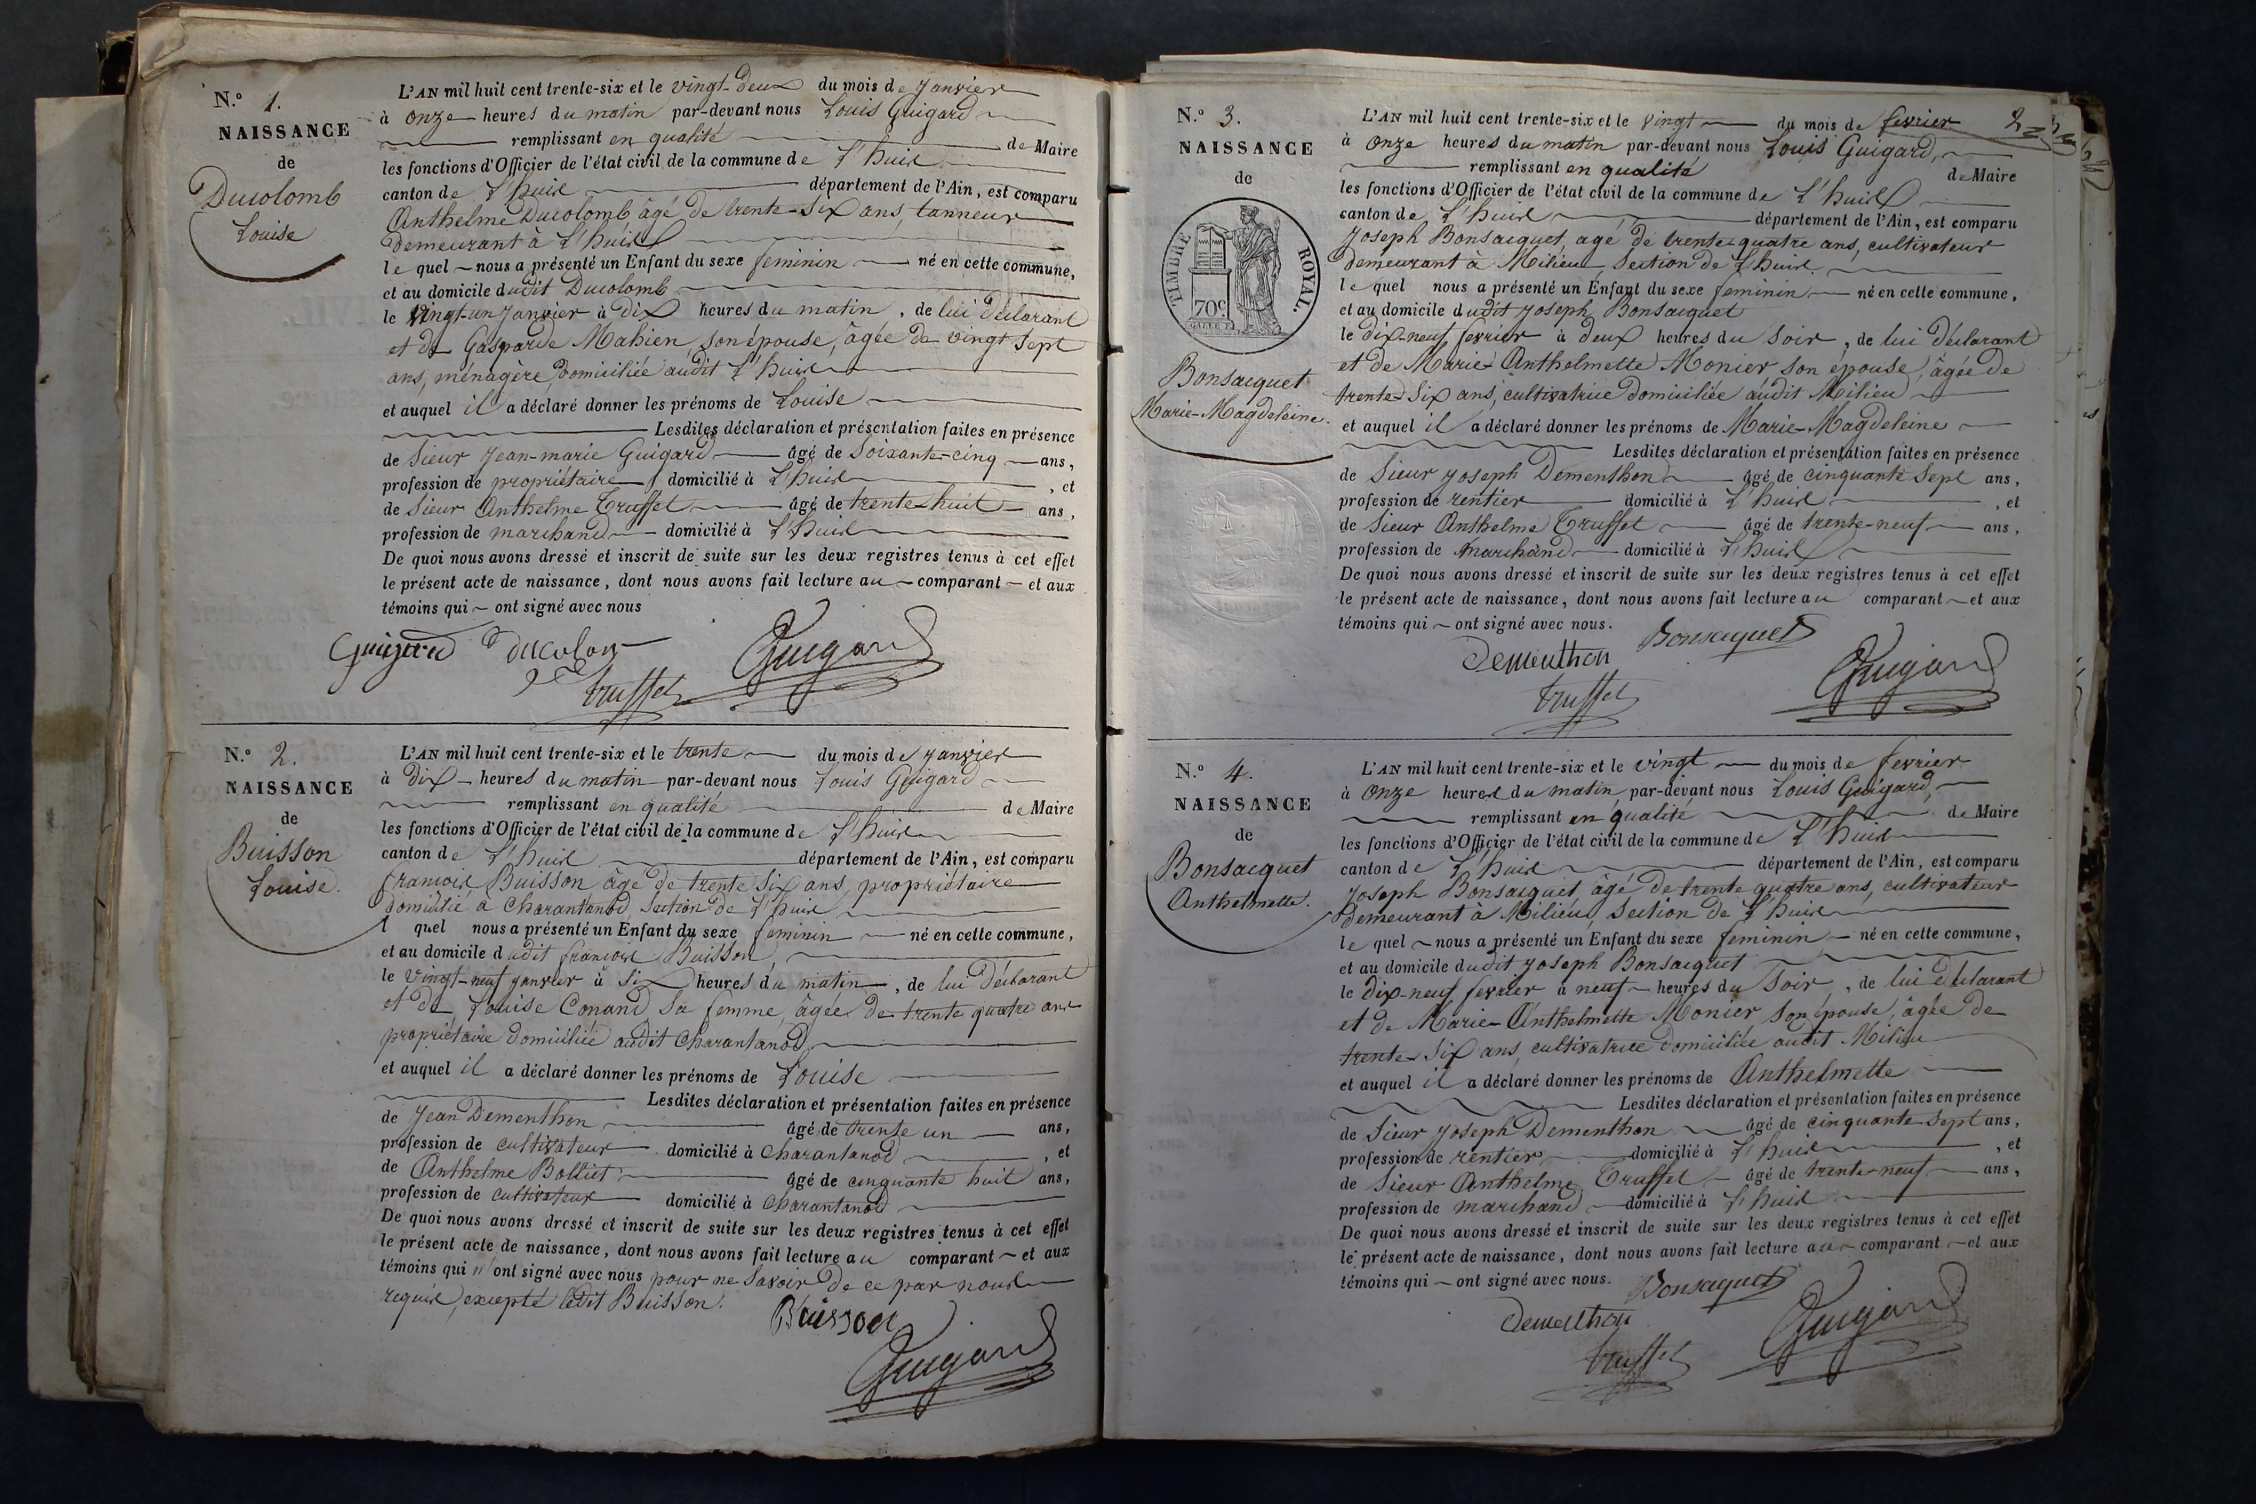 N.º 1.
NAISSANCE
de
Ducolomb
Louise
L'AN mil huit cent trente-six et le vingt-deux du mois de Janvier
à onze heures du matin par-devant nous Louis Guigard
remplissant en qualité de Maire
les fonctions d'Officier de l'état civil de la commune de L'huis
canton de L'huis département de l'Ain, est comparu
Anthelme Ducolomb âgé de trente-six ans, tanneur
demeurant à L'huis
le quel nous a présenté un Enfant du sexe feminin né en cette commune,
et au domicile dudit Ducolomb
le vingt-un Janvier à dix heures du matin, de lui déclarant
et de Gasparde Mahien, son épouse, âgée de vingt sept
ans, ménagère domiciliée audit L'huis
et auquel il a déclaré donner les prénoms de Louise
Lesdites déclaration et présentation faites en présence
de Sieur Jean-marie Guigard âgé de Soixante-cinq ans,
profession de propriétaire domicilié à L'huis, et
de Sieur Anthelme Truffet âgé de trente-huit ans,
profession de marchand domicilié à L'huis
De quoi nous avons dressé et inscrit de suite sur les deux registres tenus à cet effet
le présent acte de naissance, dont nous avons fait lecture au comparant et aux
témoins qui ont signé avec nous
Guigard Ducolom Guigard
truffet
N.º 2.
NAISSANCE
de
Buisson
Louise.
L'AN mil huit cent trente-six et le trente du mois de Janvier
à dix heures du matin par-devant nous Louis Guigard
remplissant en qualité de Maire
les fonctions d'Officier de l'état civil de la commune de L'huis
canton de L'huis département de l'Ain, est comparu
francois Buisson âgé de trente six ans, propriétaire
domicilié à Charantanod section de L'huis
l quel nous a présenté un Enfant du sexe feminin né en cette commune,
et au domicile dudit francois Buisson
le vingt-neuf janvier à six heures du matin, de lui déclarant
et de Louise Conand sa femme, âgée de trente quatre ans
propriétaire domiciliée audit Charantanod
et auquel il a déclaré donner les prénoms de Louise
Lesdites déclaration et présentation faites en présence
de Jean Dementhon âgé de trente un ans,
profession de cultivateur domicilié à Charantanod, et
de Anthelme Bolliet âgé de cinquante huit ans,
profession de cultivateur domicilié à Charantanod
De quoi nous avons dressé et inscrit de suite sur les deux registres tenus à cet effet
le présent acte de naissance, dont nous avons fait lecture au comparant et aux
témoins qui n'ont signé avec nous pour ne savoir de ce par nous
requis, excepté ledit Buisson.
Buisson
Guigard
N.º 3.
NAISSANCE
de
TIMBRE ROYAL.
70c
Bonsacquet
Marie-Magdeleine.
L'AN mil huit cent trente-six et le vingt du mois de fevrier
à onze heures du matin par-devant nous Louis Guigard,
remplissant en qualité de Maire
les fonctions d'Officier de l'état civil de la commune de L'huis
canton de L'huis département de l'Ain, est comparu
Joseph Bonsacquet, agé de trente quatre ans, cultivateur
demeurant à Milieu, Section de L'huis.
le quel nous a présenté un Enfant du sexe feminin né en cette commune,
et au domicile dudit Joseph Bonsacquet
le dix-neuf fevrier à deux heures du soir, de lui déclarant
et de Marie-Anthelmette Monier son épouse, âgée de
trente-six ans, cultivatrice domiciliée audit Milieu
et auquel il a déclaré donner les prénoms de Marie-Magdeleine
Lesdites déclaration et présentation faites en présence
de Sieur Joseph Dementhon âgé de cinquante sept ans,
profession de rentier domicilié à L'huis, et
de Sieur Anthelme Truffet âgé de trente-neuf ans,
profession de marchand domicilié à L'huis
De quoi nous avons dressé et inscrit de suite sur les deux registres tenus à cet effet
le présent acte de naissance, dont nous avons fait lecture au comparant et aux
témoins qui ont signé avec nous.
Dementhon Bonsacquet
truffet Guigard
N.º 4.
NAISSANCE
de
Bonsacquet
Anthelmette.
L'AN mil huit cent trente-six et le vingt du mois de fevrier
à onze heures du matin par-devant nous Louis Guigard,
remplissant en qualité de Maire
les fonctions d'Officier de l'état civil de la commune de L'huis
canton de L'huis département de l'Ain, est comparu
Joseph Bonsacquet, âgé de trente quatre ans, cultivateur
demeurant à Milieu, Section de L'huis
le quel nous a présenté un Enfant du sexe feminin né en cette commune,
et au domicile dudit Joseph Bonsacquet
le dix-neuf fevrier à neuf heures du Soir, de lui déclarant
et de Marie-Anthelmette Monier, son épouse, âgée de
trente-six ans, cultivatrice domiciliée audit Milieu
et auquel il a déclaré donner les prénoms de Anthelmette
Lesdites déclaration et présentation faites en présence
de Sieur Joseph Dementhon âgé de cinquante-sept ans,
profession de rentier domicilié à L'huis, et
de Sieur Anthelme Truffet âgé de trente-neuf ans,
profession de marchand domicilié à L'huis
De quoi nous avons dressé et inscrit de suite sur les deux registres tenus à cet effet
le présent acte de naissance, dont nous avons fait lecture au comparant et aux
témoins qui ont signé avec nous. Bonsacquet
Dementhon Guigard
truffet